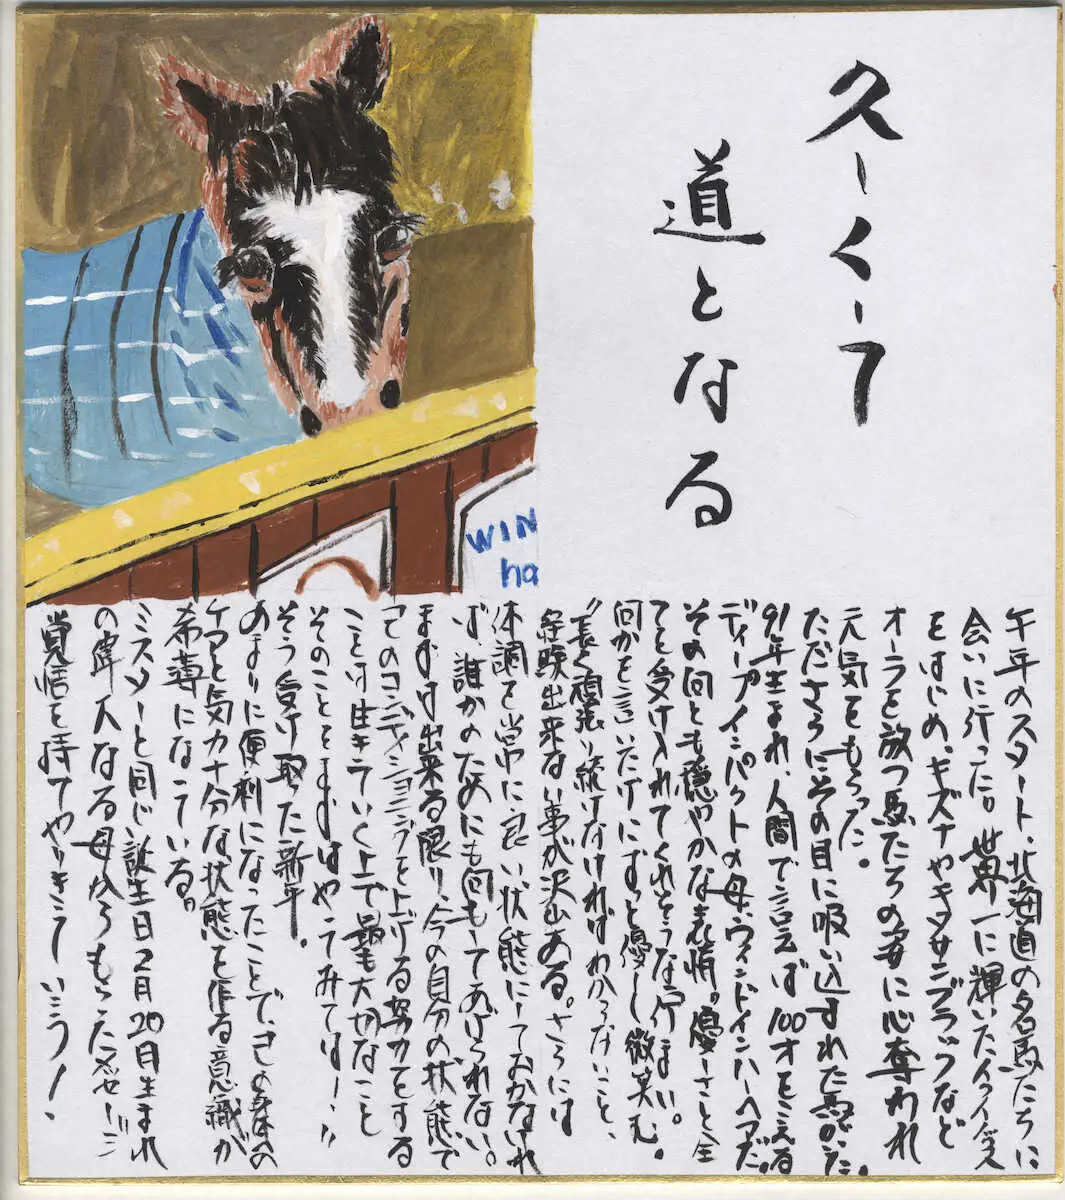 久しくして
道となる
WIN
ha
午年のスタート、北海道の名馬たちに
会いに行った。世界一に輝いたイクイノックス
をはじめ、キズナやキタサンブラックなど
オーラを放つ馬たちの姿に心奪われ
元気をもらった。
たださらにその目に吸い込まれた馬がいた。
91年生まれ、人間で言えば100才をこえる
ディープインパクトの母、ウインドインハーヘアだ。
その何とも穏やかな表情。優しさと全
てを受け入れてくれそうな佇まい。
何かを言いたげにずっと優しく微笑む。
"長く頑張り続けなければわからないこと、
経験出来ない事が沢山ある。さらには
体調を常に良い状態にしておかなけれ
ば、誰かのためにも何もしてあげられない。
まずは出来る限り、今の自分の状態で
コンディショニングを上げる努力をする
ことは生きていく上で最も大切なこと
そのことをまずはやってみては！"
そう受け取った新年。
あまりに便利になったことで、身体の
ケアと気力十分な状態を作る意識が
希薄になっている。
ミスターと同じ誕生日2月20日生まれ
の偉大なる母からもらったメッセージ
覚悟を持ってやりきっていこう！